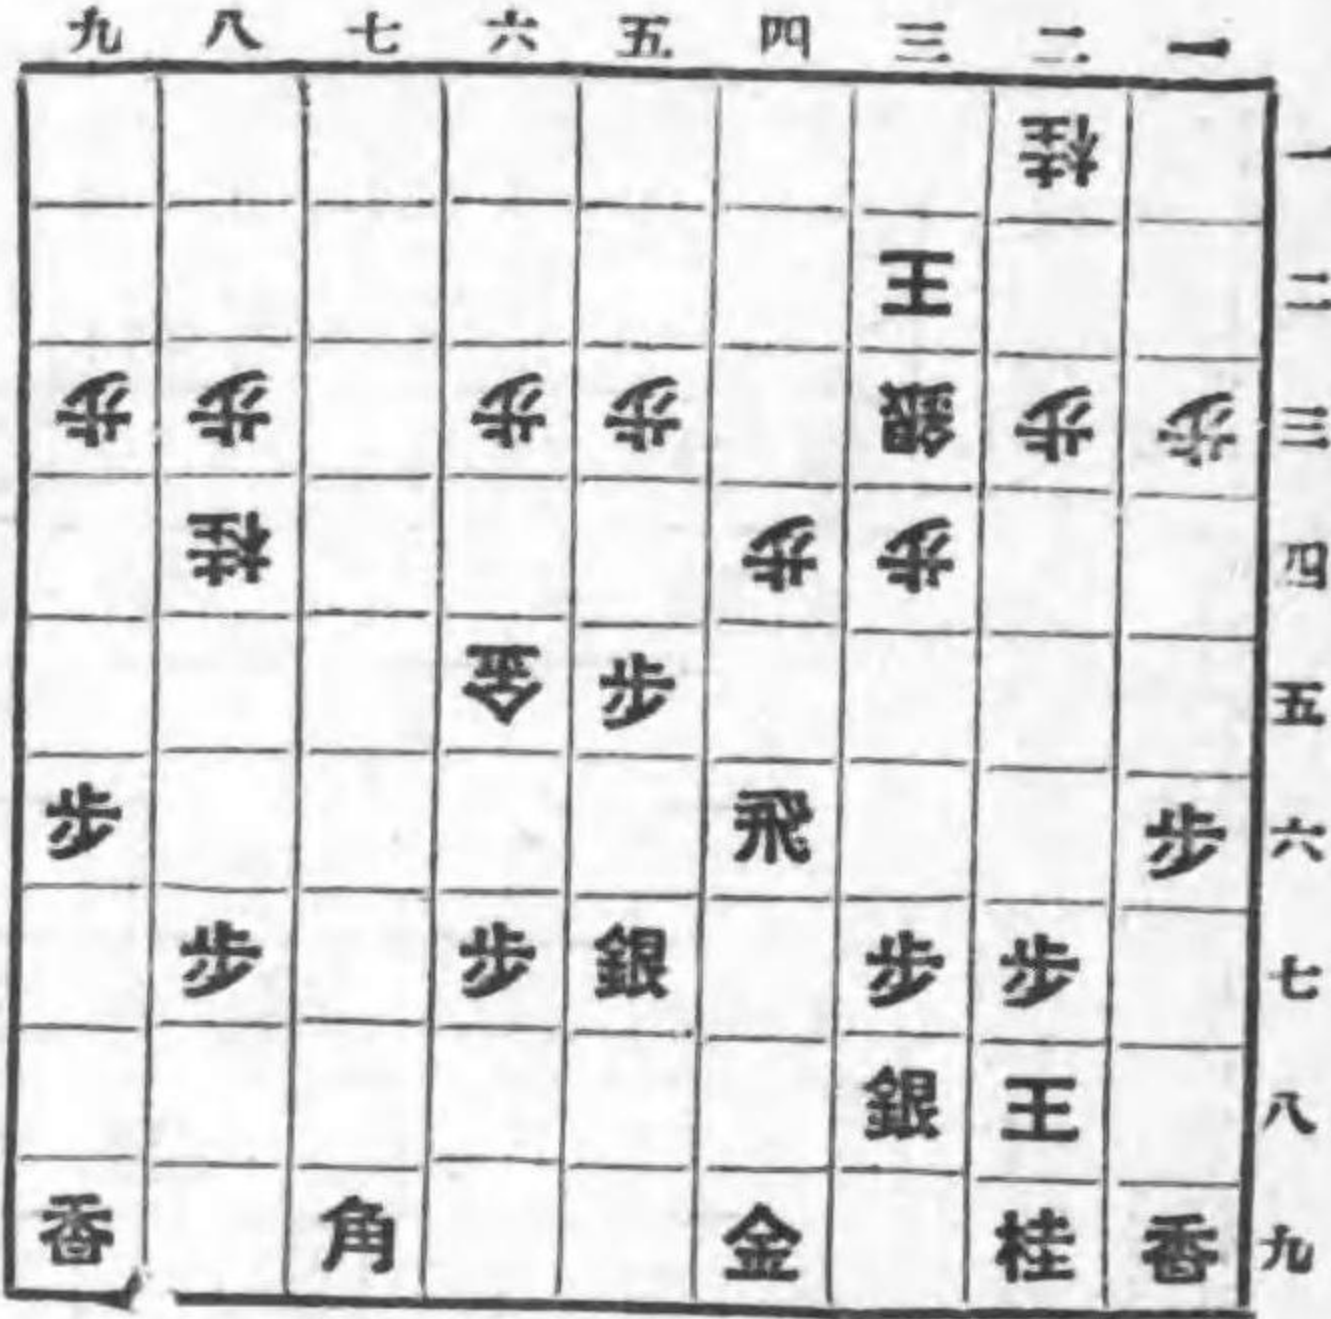 九 八 七 六 五 四 三 二 一
桂 一
王 二
歩 歩 歩 歩 銀 歩 歩 三
桂 歩 歩 四
金 歩 五
歩 飛 歩 六
歩 歩 銀 歩 歩 七
銀 王 八
香 角 金 桂 香 九